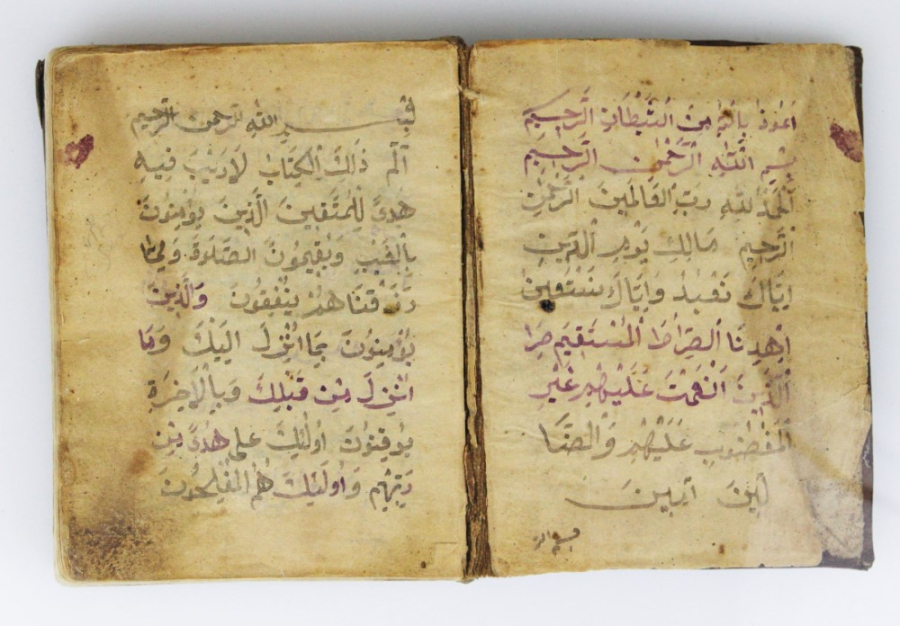 اعوذ بالله من الشيطان الرجيم
بسم الله الرحمن الرحيم
الحمد لله رب العالمين الرحمن
الرحيم مالك يوم الدين
اياك نعبد واياك نستعين
اهدنا الصراط المستقيم صرا
الذين انعمت عليهم غير
المغضوب عليهم والضا
لين امين
بسم الله
بسم الله الرحمن الرحيم
الم ذلك الكتاب لا ريب فيه
هدى للمتقين الذين يؤمنون
بالغيب ويقيمون الصلوة ومما
رزقناهم ينفقون والذين
يؤمنون بما انزل اليك وما
انزل من قبلك وبالاخرة
يوقنون اولئك على هدى من
ربهم واولئك هم المفلحون